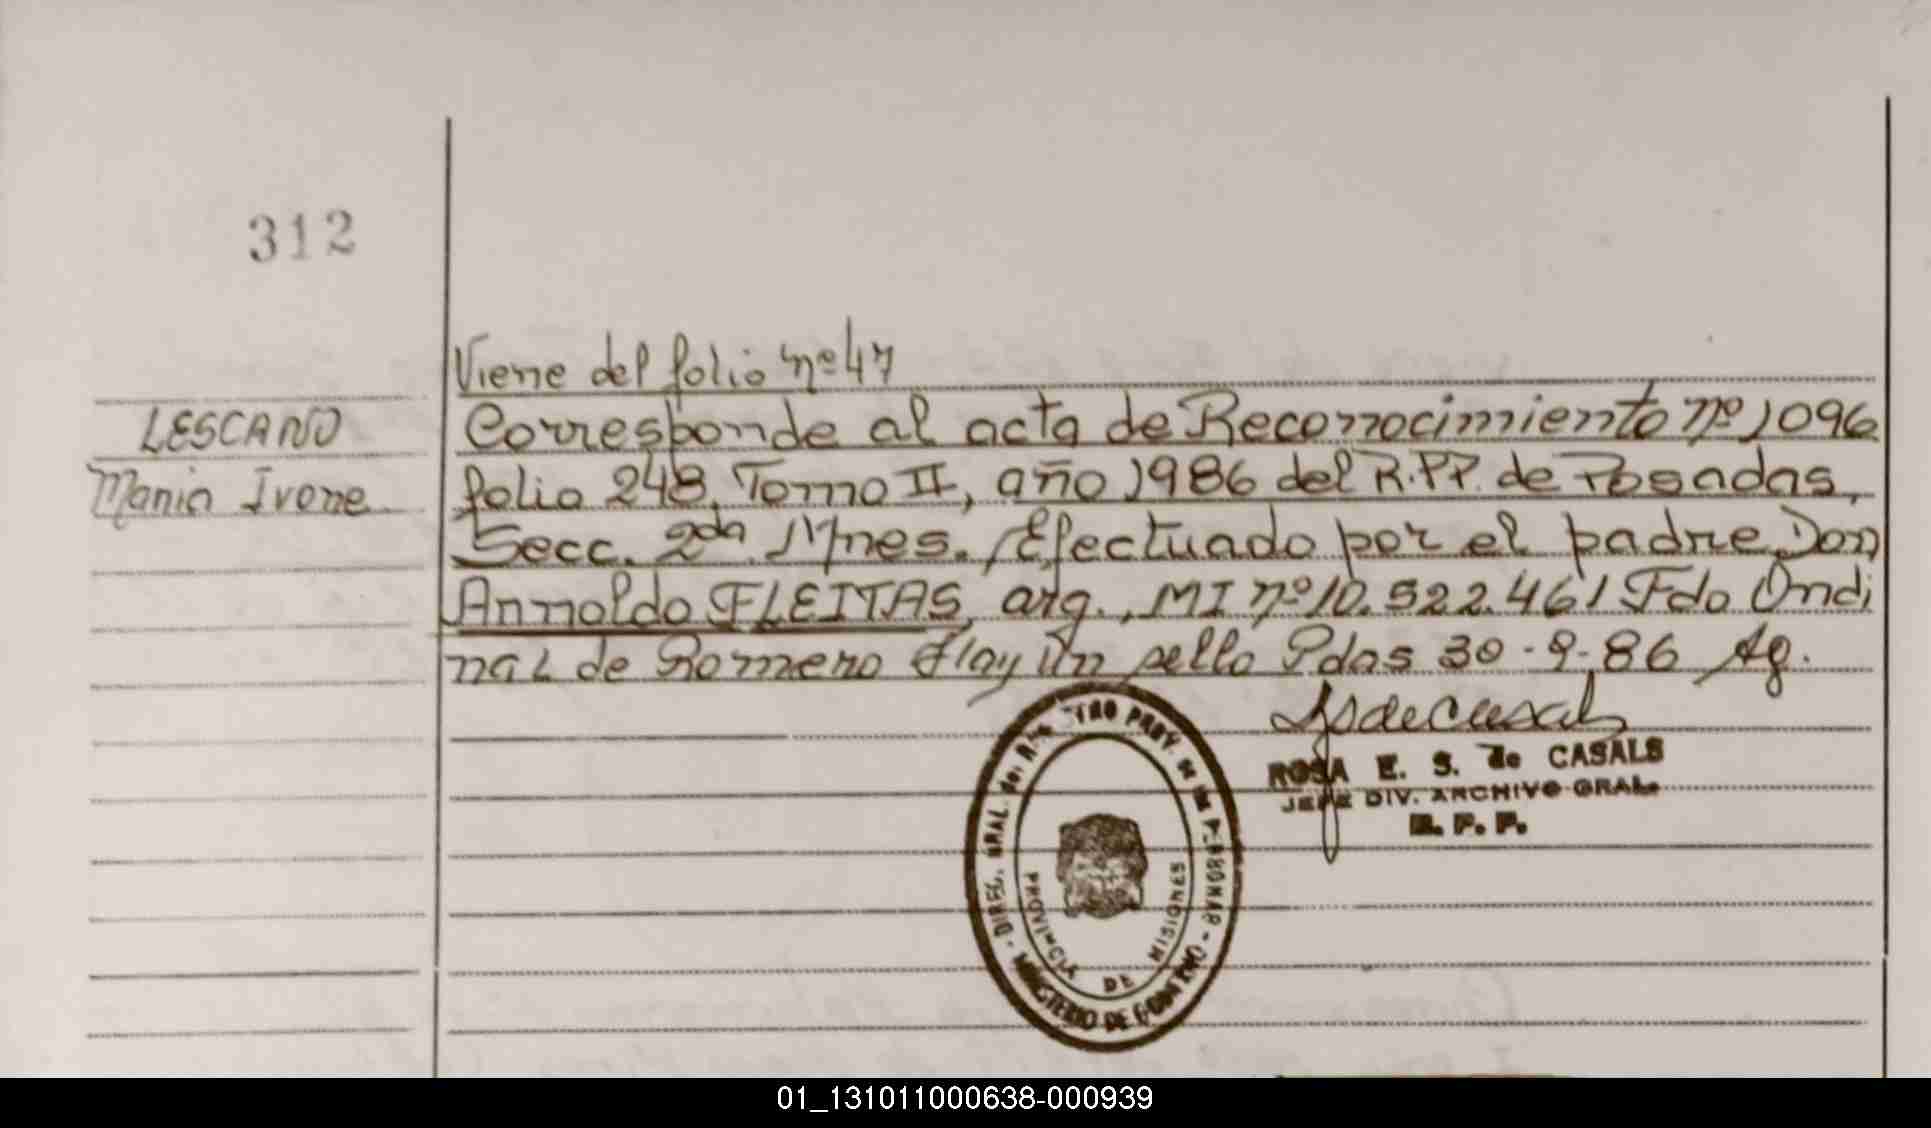 312
Viene del folio nº 47
LESCANO
Maria Ivone
Corresponde al acta de Reconocimiento nº 1096
folio 248, Tomo II, año 1986 del R.PP. de Posadas,
Secc. 2da. Mnes. Efectuado por el padre Don
Arnoldo FLEITAS, arg., MI nº 10.522.461 Fdo Ordi
nal de Romero Hay un sello Pdas 30-9-86 Ag.
ROSA E. S. de CASALS
JEFE DIV. ARCHIVO GRAL.
R. P. P.
PROVINCIA DE MISIONES
MINISTERIO DE GOBIERNO
01_131011000638-000939